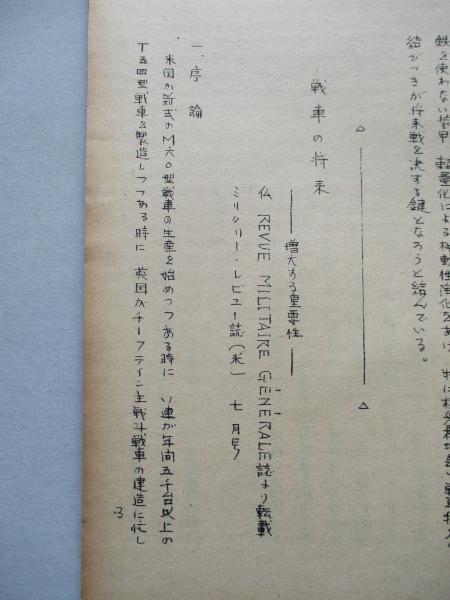 鉄を使わない装甲、軽量化による機動性
結びつきが将来戦を決する鍵となろうと結んでいる。
戦車の将来
――増大する重要性――
仏 REVUE MILITAIRE GÉNÉRALE誌より転載
ミリタリー・レビュー誌(米) 七月号
一、序論
米国が新式のM六〇型戦車の生産を始めつつある時に ソ連が年間五千台以上の
T五四型戦車を製造しつつある時に 英国がチーフテイン主戦斗戦車の建造に忙し
3